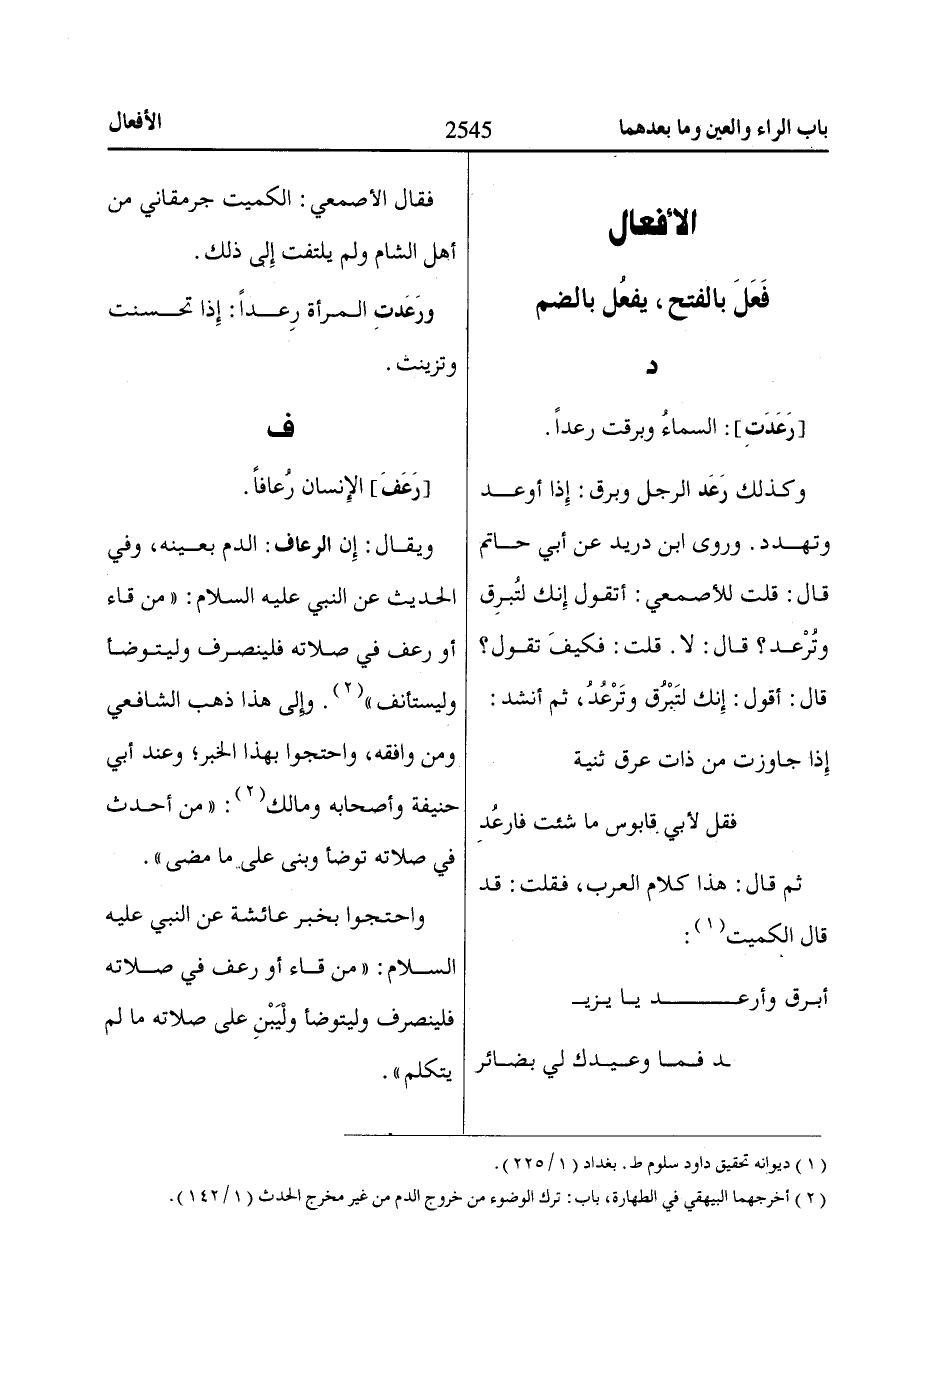 باب الراء والعين وما بعدهما
2545
الأفعال
الأفعال
فَعَلَ بالفتح، يفعُل بالضم
د
[رَعَدَت]: السماءُ وبرقت رعداً.
وكذلك رَعَد الرجل وبرق: إذا أوعــد
وتهــدد. وروى ابن دريد عن أبي حــاتم
قال: قلت للأصمعي: أتقول إنك لتُبرق
وتُرْعـد؟ قـال: لا. قلت: فكيفَ تقول؟
قال: أقول: إنك لتَبْرُق وتَرْعُدُ، ثم أنشد:
إذا جاوزت من ذات عرق ثنية
فقل لأبي قابوس ما شئت فارعُد
ثم قال: هذا كلام العرب، فقلت: قد
قال الكميت(١):
أبـرق وأرعـــــــــد يـا يـزيـ
ـد فـمـا وعـيـدك لي بضـائر
فقال الأصمعي: الكميت جرمقاني من
أهل الشام ولم يلتفت إلى ذلك.
ورَعَدت المـرأة رعــداً: إذا تحـسـنت
وتزينت.
ف
[رَعَفَ] الإنسان رُعافاً.
ويقـال: إن الرعاف: الدم بعـينه، وفي
الحديث عن النبي عليه السلام: «من قاء
أو رعف في صلاته فلينصرف وليتـوضأ
وليستأنف»(٢). وإلى هذا ذهب الشافعي
ومن وافقه، واحتجوا بهذا الخبر؛ وعند أبي
حنيفة وأصحابه ومالك(٢): «من أحـدث
في صلاته توضأ وبنى على ما مضى».
واحتجوا بخبر عـائشة عن النبي عليه
السـلام: «من قـاء أو رعف في صـلاته
فلينصرف وليتوضأ ولْيَبْنِ على صلاته ما لم
يتكلم».
(١) ديوانه تحقيق داود سلوم ط. بغداد (٢٢٥/١).
(٢) أخرجهما البيهقي في الطهارة، باب: ترك الوضوء من خروج الدم من غير مخرج الحدث (١٤٢/١).